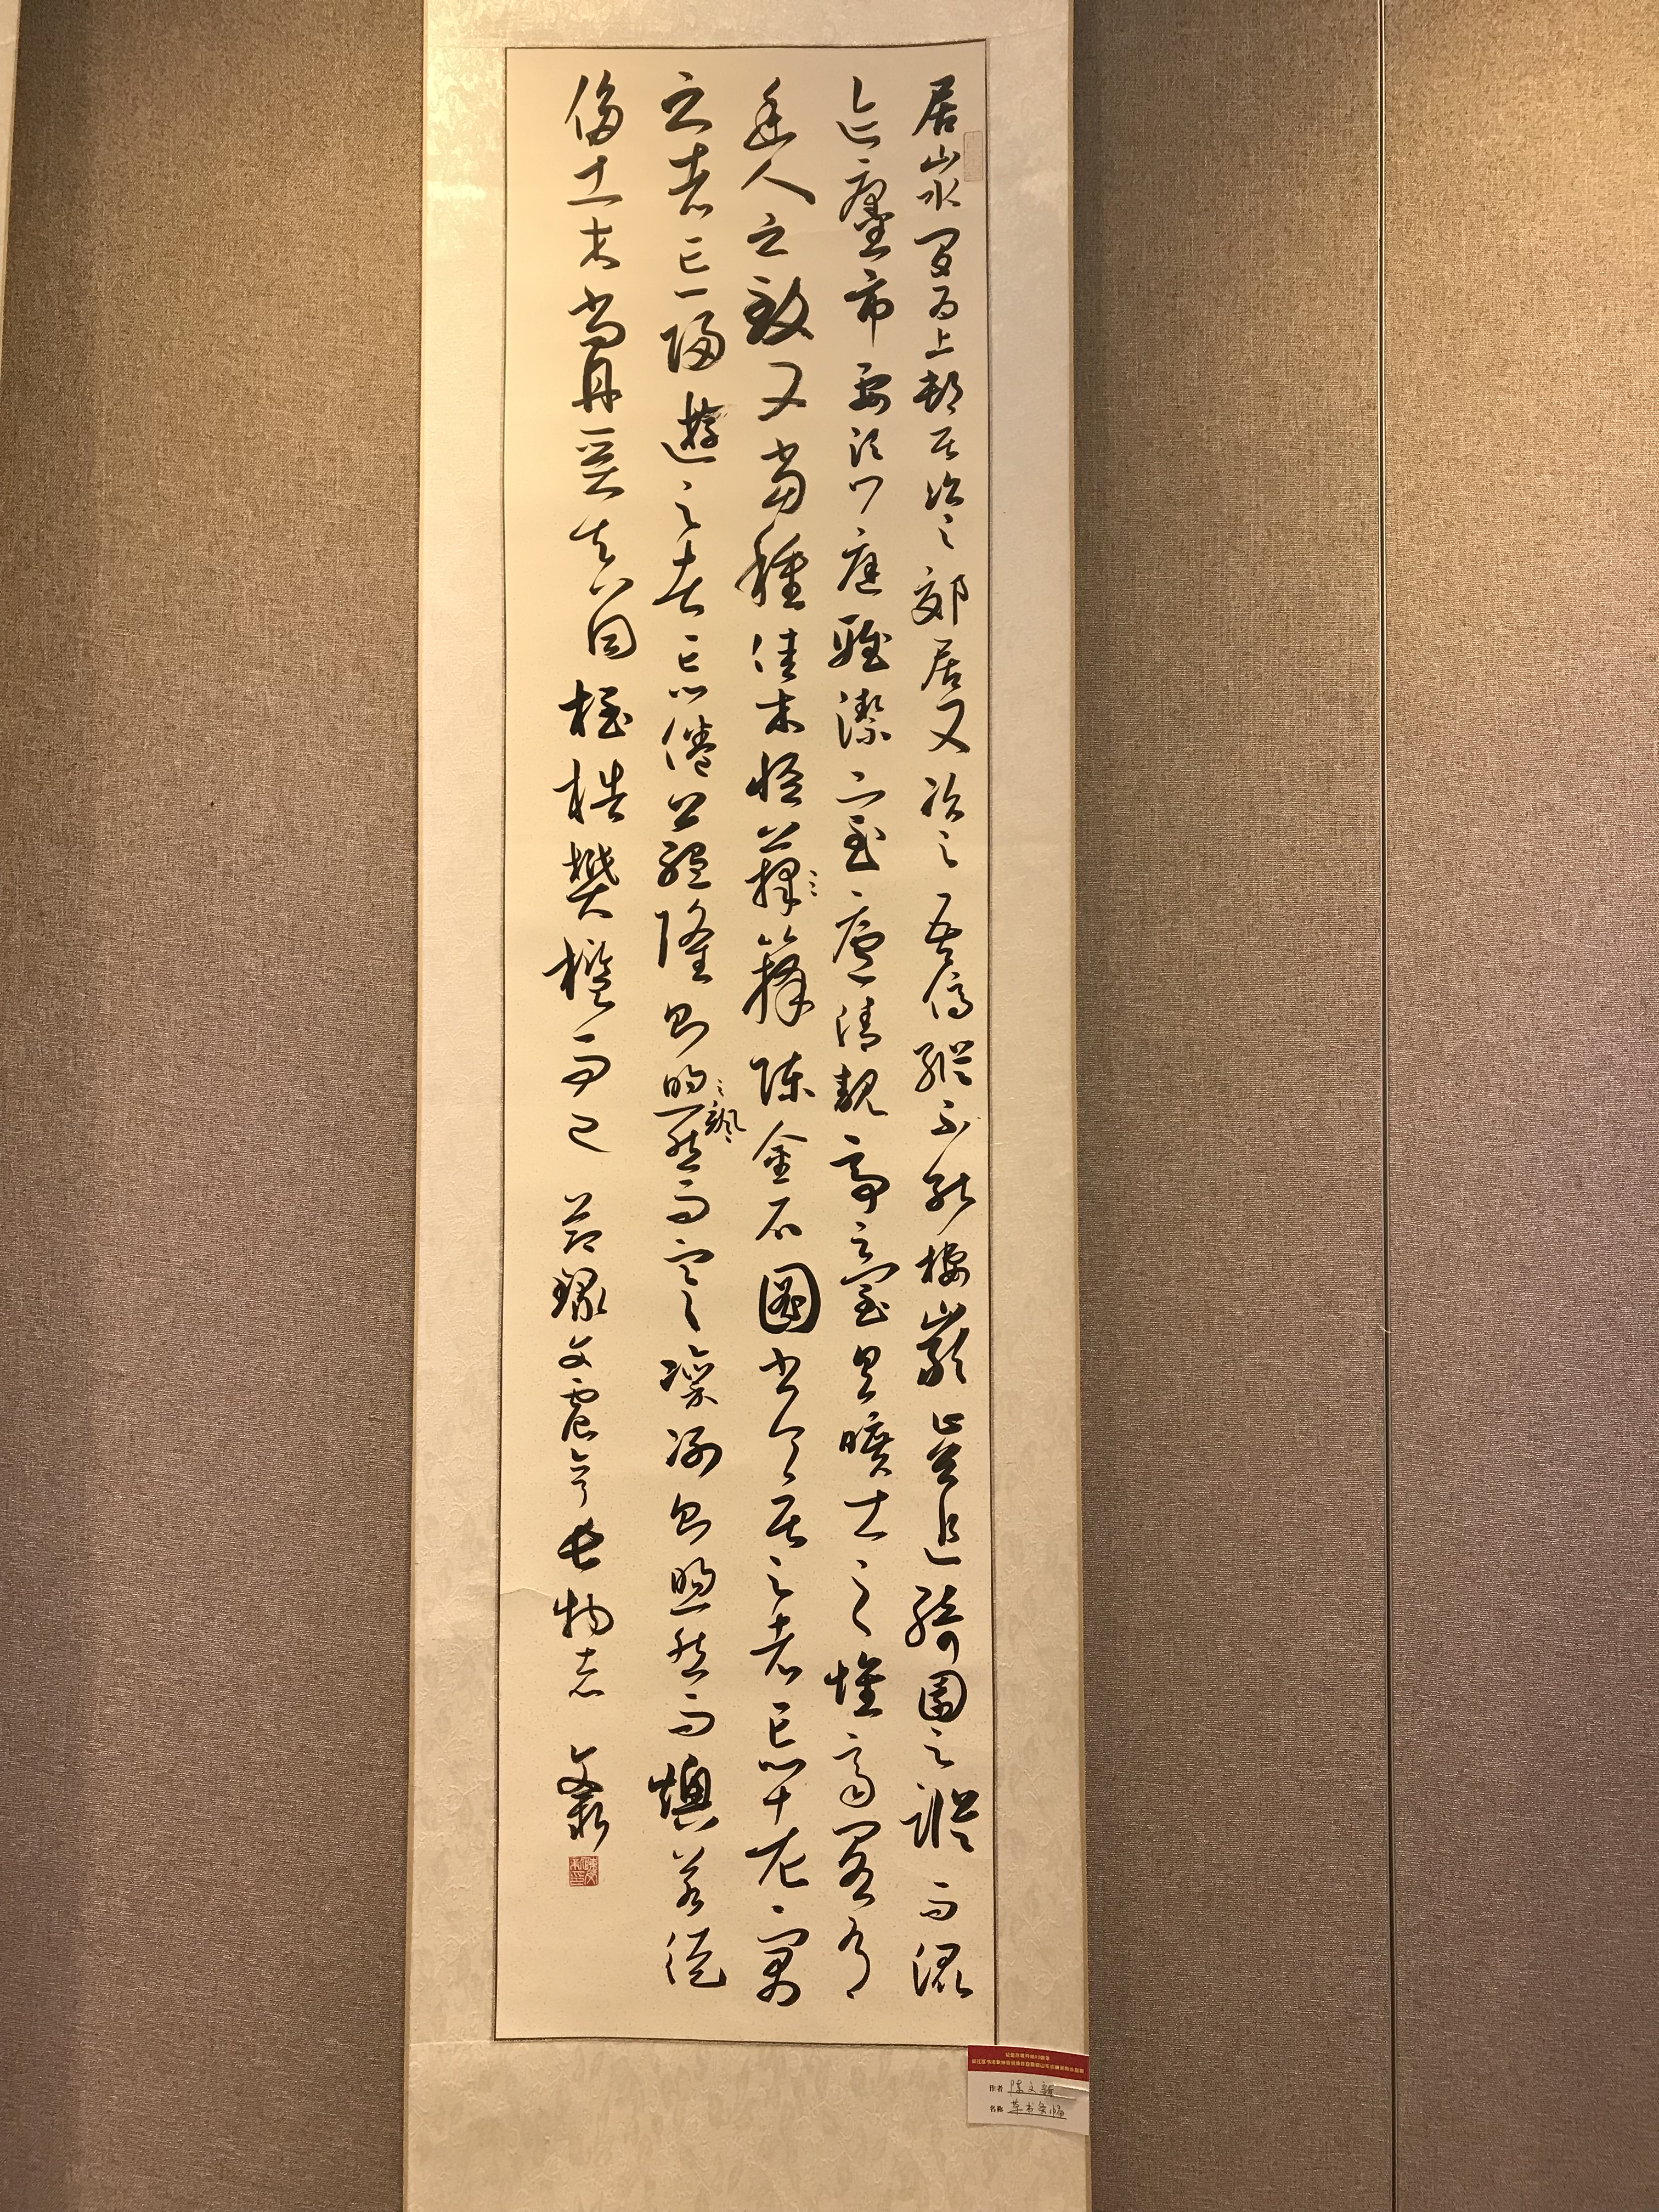 居山水間为上邨居次之郊居又次之吾儕縱不能棲巖止谷追綺園之蹤而混
迹廛市要須門庭雅潔室廬清靚亭臺具曠士之懷齋閣有
幽人之致又當種佳木怪蘀籜陳金石圖書令居之者忘老寓
之者忘歸遊之者忘倦蘊隆則颯然而寒凜冽則煦然而燠若徒
侈土木尚丹堊真同桎梏樊檻而已 節錄文震亨長物志 文
作者 陈文
名称 草书条幅